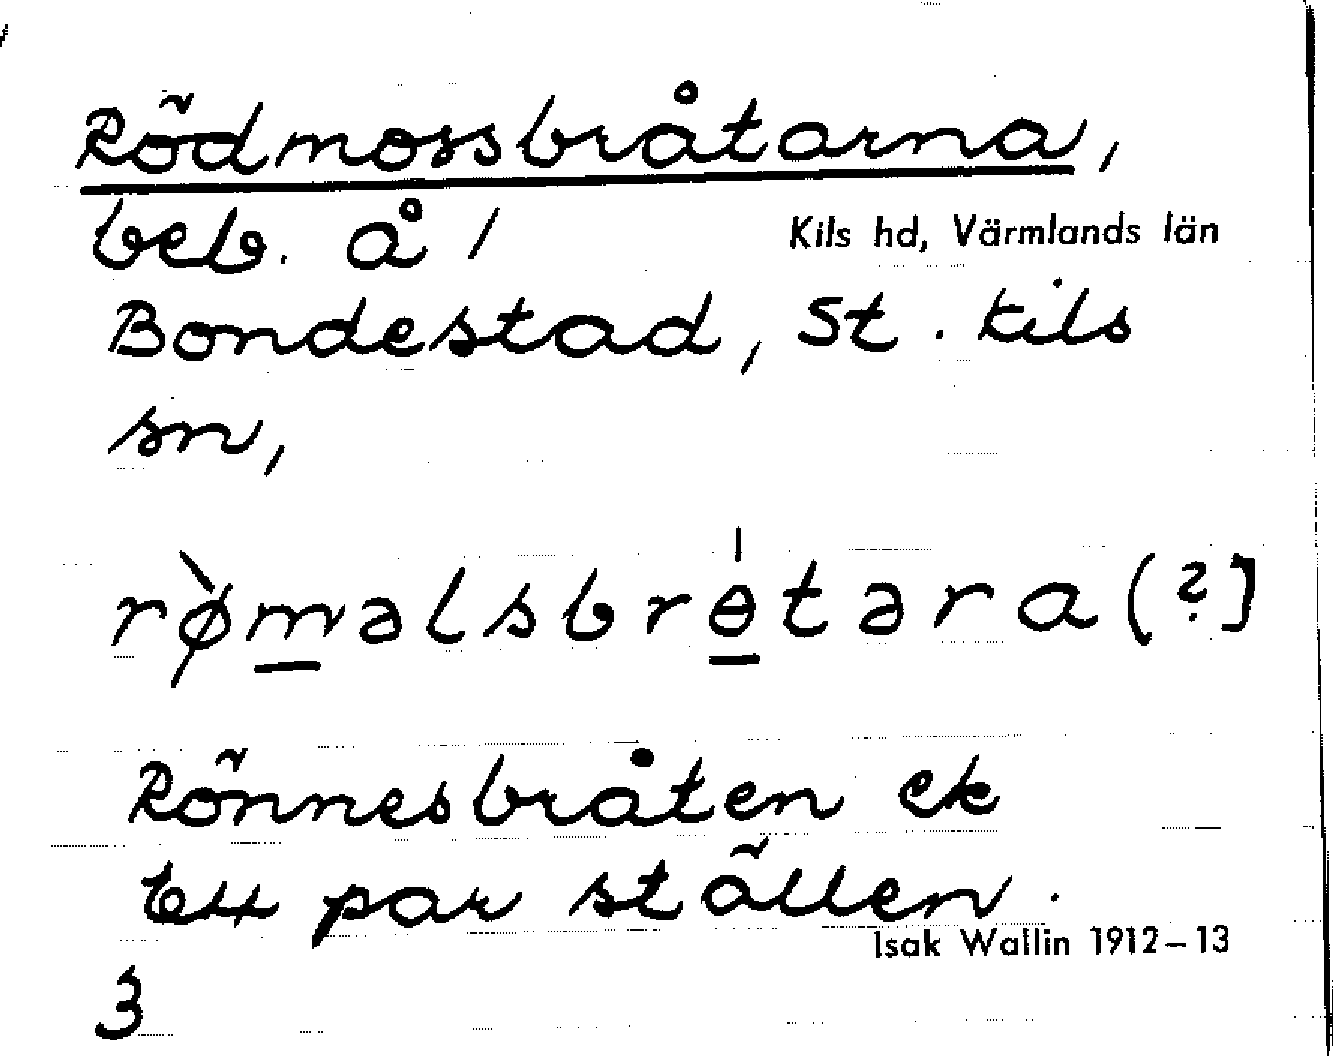 Rödmossbråtarna,
beb. å /
Kils hd, Värmlands län
Bondestad, St. Kils
sn,
rø̀məlsbrɵ́təra (?]
Rönnesbråten ek
ett par ställen.
Isak Wallin 1912–13
3